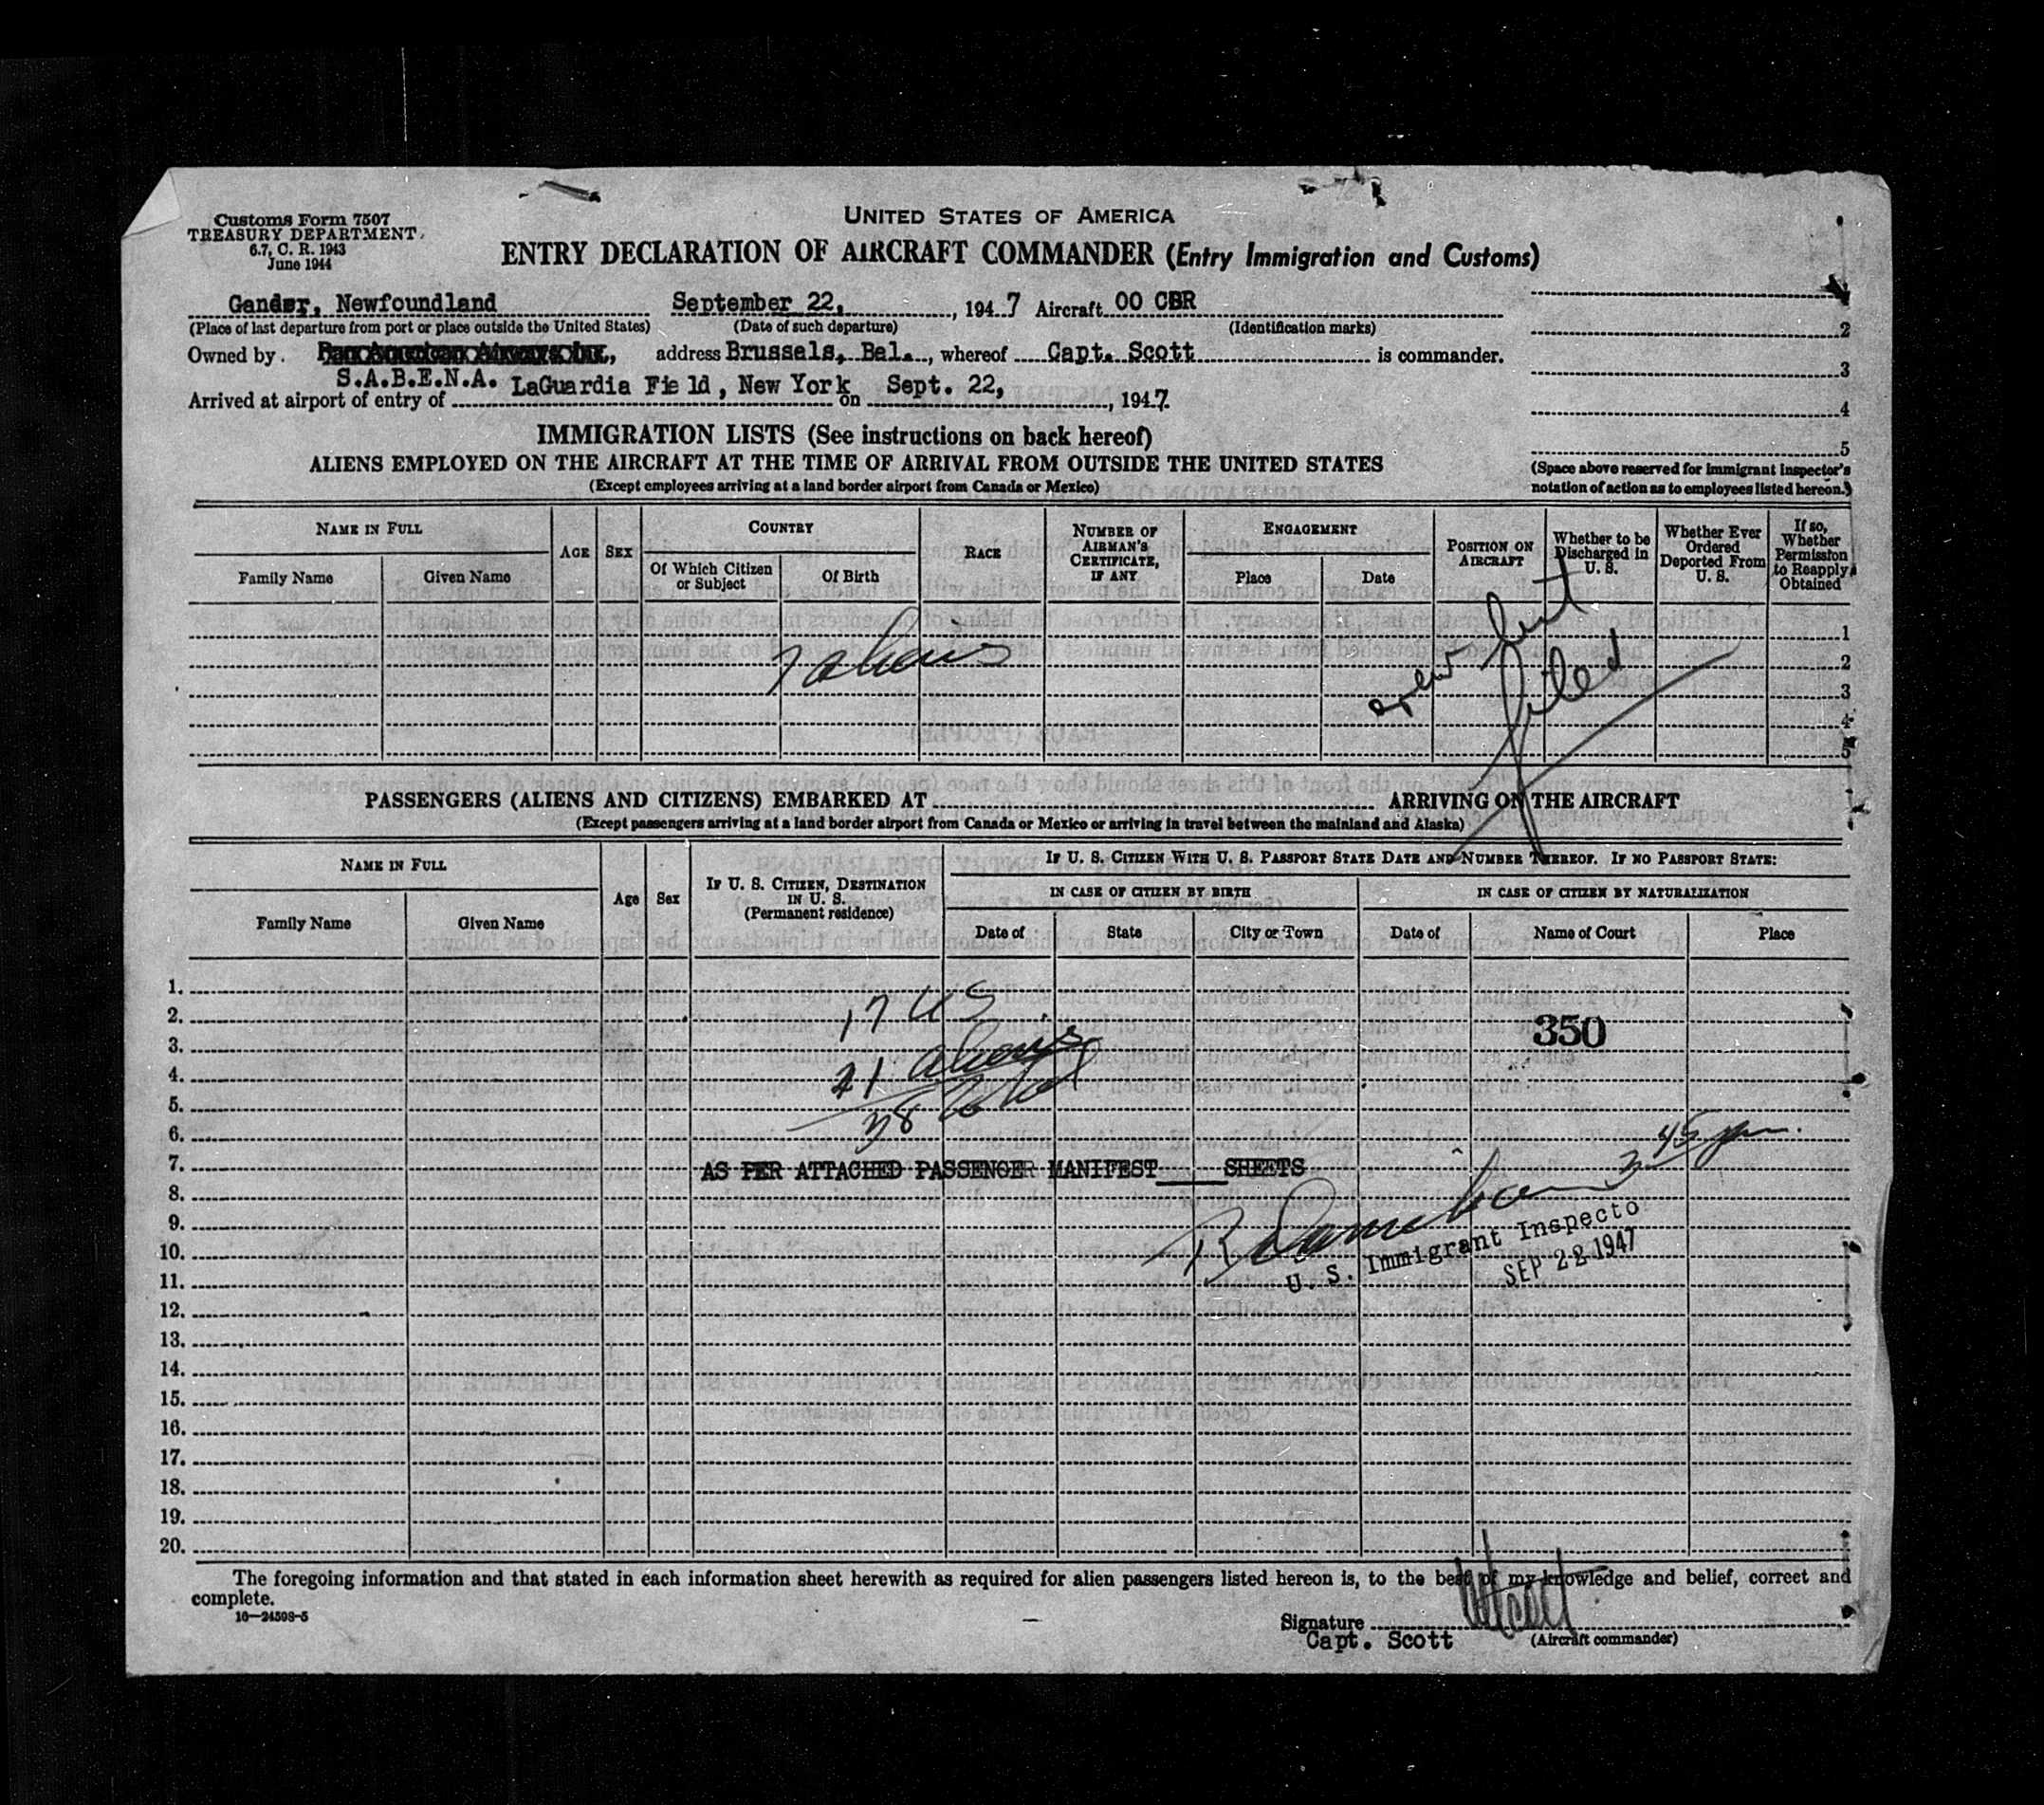 Customs Form 7507
TREASURY DEPARTMENT
6.7, C. R. 1943
June 1944
UNITED STATES OF AMERICA
ENTRY DECLARATION OF AIRCRAFT COMMANDER (Entry Immigration and Customs)
Gander, Newfoundland September 22, , 1947 Aircraft OO CBR
(Place of last departure from port or place outside the United States) (Date of such departure) (Identification marks)
Owned by Pan American Airways Inc., address Brussels, Bel. , whereof Capt. Scott is commander.
S.A.B.E.N.A.
Arrived at airport of entry of LaGuardia Field, New York on Sept. 22, , 1947
1
2
3
4
5
(Space above reserved for Immigrant Inspector's
notation of action as to employees listed hereon.)
IMMIGRATION LISTS (See instructions on back hereof)
ALIENS EMPLOYED ON THE AIRCRAFT AT THE TIME OF ARRIVAL FROM OUTSIDE THE UNITED STATES
(Except employees arriving at a land border airport from Canada or Mexico)
NAME IN FULL
Family Name
Given Name
AGE
SEX
COUNTRY
Of Which Citizen or Subject
Of Birth
RACE
NUMBER OF AIRMAN'S CERTIFICATE, IF ANY
ENGAGEMENT
Place
Date
POSITION ON AIRCRAFT
Whether to be Discharged in U. S.
Whether Ever Ordered Deported From U. S.
If so, Whether Permission to Reapply Obtained
7 aliens
crew list
filed
1
2
3
4
5
PASSENGERS (ALIENS AND CITIZENS) EMBARKED AT ARRIVING ON THE AIRCRAFT
(Except passengers arriving at a land border airport from Canada or Mexico or arriving in travel between the mainland and Alaska)
NAME IN FULL
Family Name
Given Name
Age
Sex
IF U. S. CITIZEN, DESTINATION IN U. S. (Permanent residence)
IF U. S. CITIZEN WITH U. S. PASSPORT STATE DATE AND NUMBER THEREOF. IF NO PASSPORT STATE:
IN CASE OF CITIZEN BY BIRTH
Date of
State
City or Town
IN CASE OF CITIZEN BY NATURALIZATION
Date of
Name of Court
Place
1.
2. 17 US
3. 350
4. 21 aliens
5. 38 total
6. 3 45 pm.
7. AS PER ATTACHED PASSENGER MANIFEST SHEETS
8.
9.
U. S. Immigrant Inspecto
10.
SEP 22 1947
11.
12.
13.
14.
15.
16.
17.
18.
19.
20.
The foregoing information and that stated in each information sheet herewith as required for alien passengers listed hereon is, to the best of my knowledge and belief, correct and
complete.
16—24598-5
Signature
Capt. Scott (Aircraft commander)